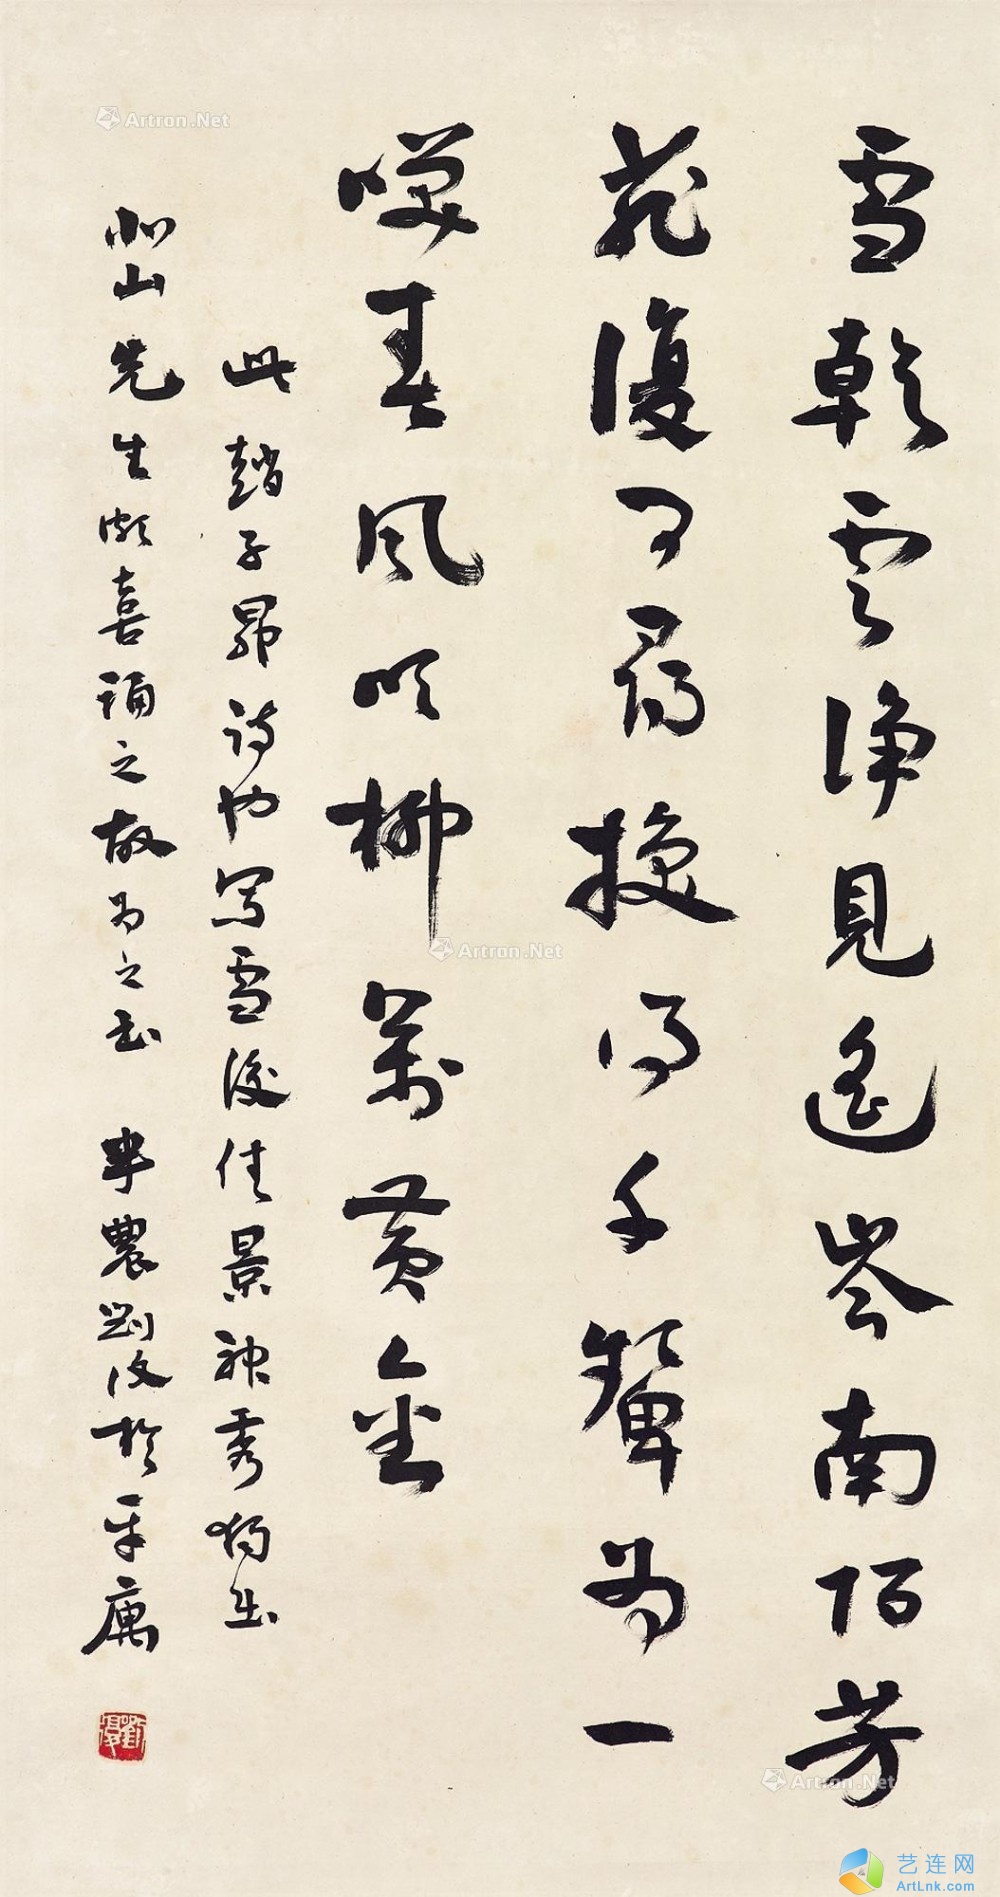 雪乾雲淨見遙岑南陌芳
菲復可尋換得千顰為一
嘆春風吹柳萬黃金
此趙子昂詩也寫雪後佳景神秀獨出
北山先生頗喜誦之故為之書 半農劉復於平寓
劉復
Artron.Net
Artron.Net
Artron.Net
艺连网
ArtLnk.com